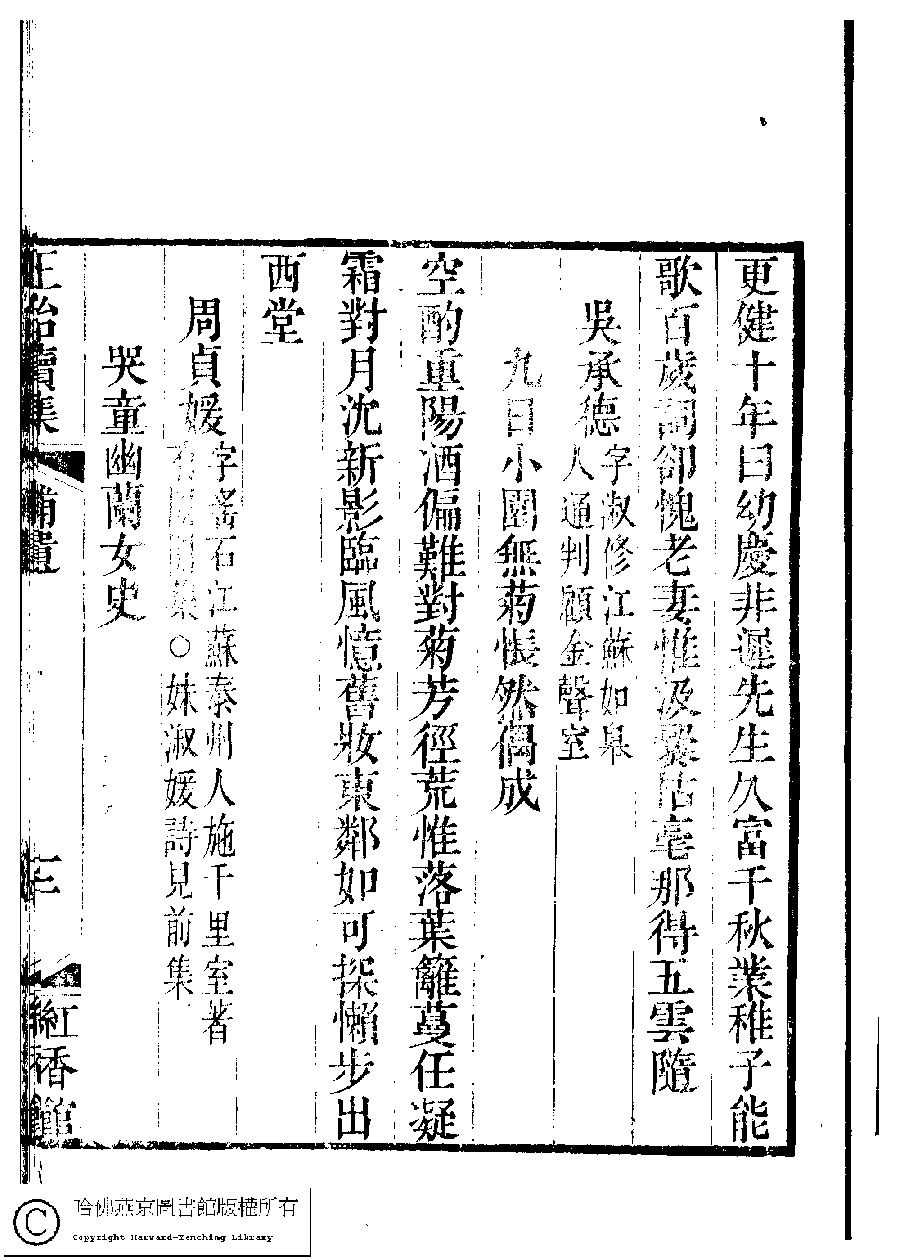 更健十年曰幼慶非遲先生久富千秋業稚子能
歌百歲詞卻愧老妻惟汲爨佔毫那得五雲隨
吳承德字淑修江蘇如臯
人通判顧金聲室
九日小園無菊悵然偶成
空酌重陽酒偏難對菊芳徑荒惟落葉籬蔓任凝
霜對月沈新影臨風憶舊妝東鄰如可探懶步出
西堂
周貞媛字窰石江蘇泰州人施千里室著
集○妹淑媛詩見前集
哭童幽蘭女史
正始續集 補遺 三 紅香館
哈佛燕京圖書館版權所有
Copyright Harvard-Yenching Library